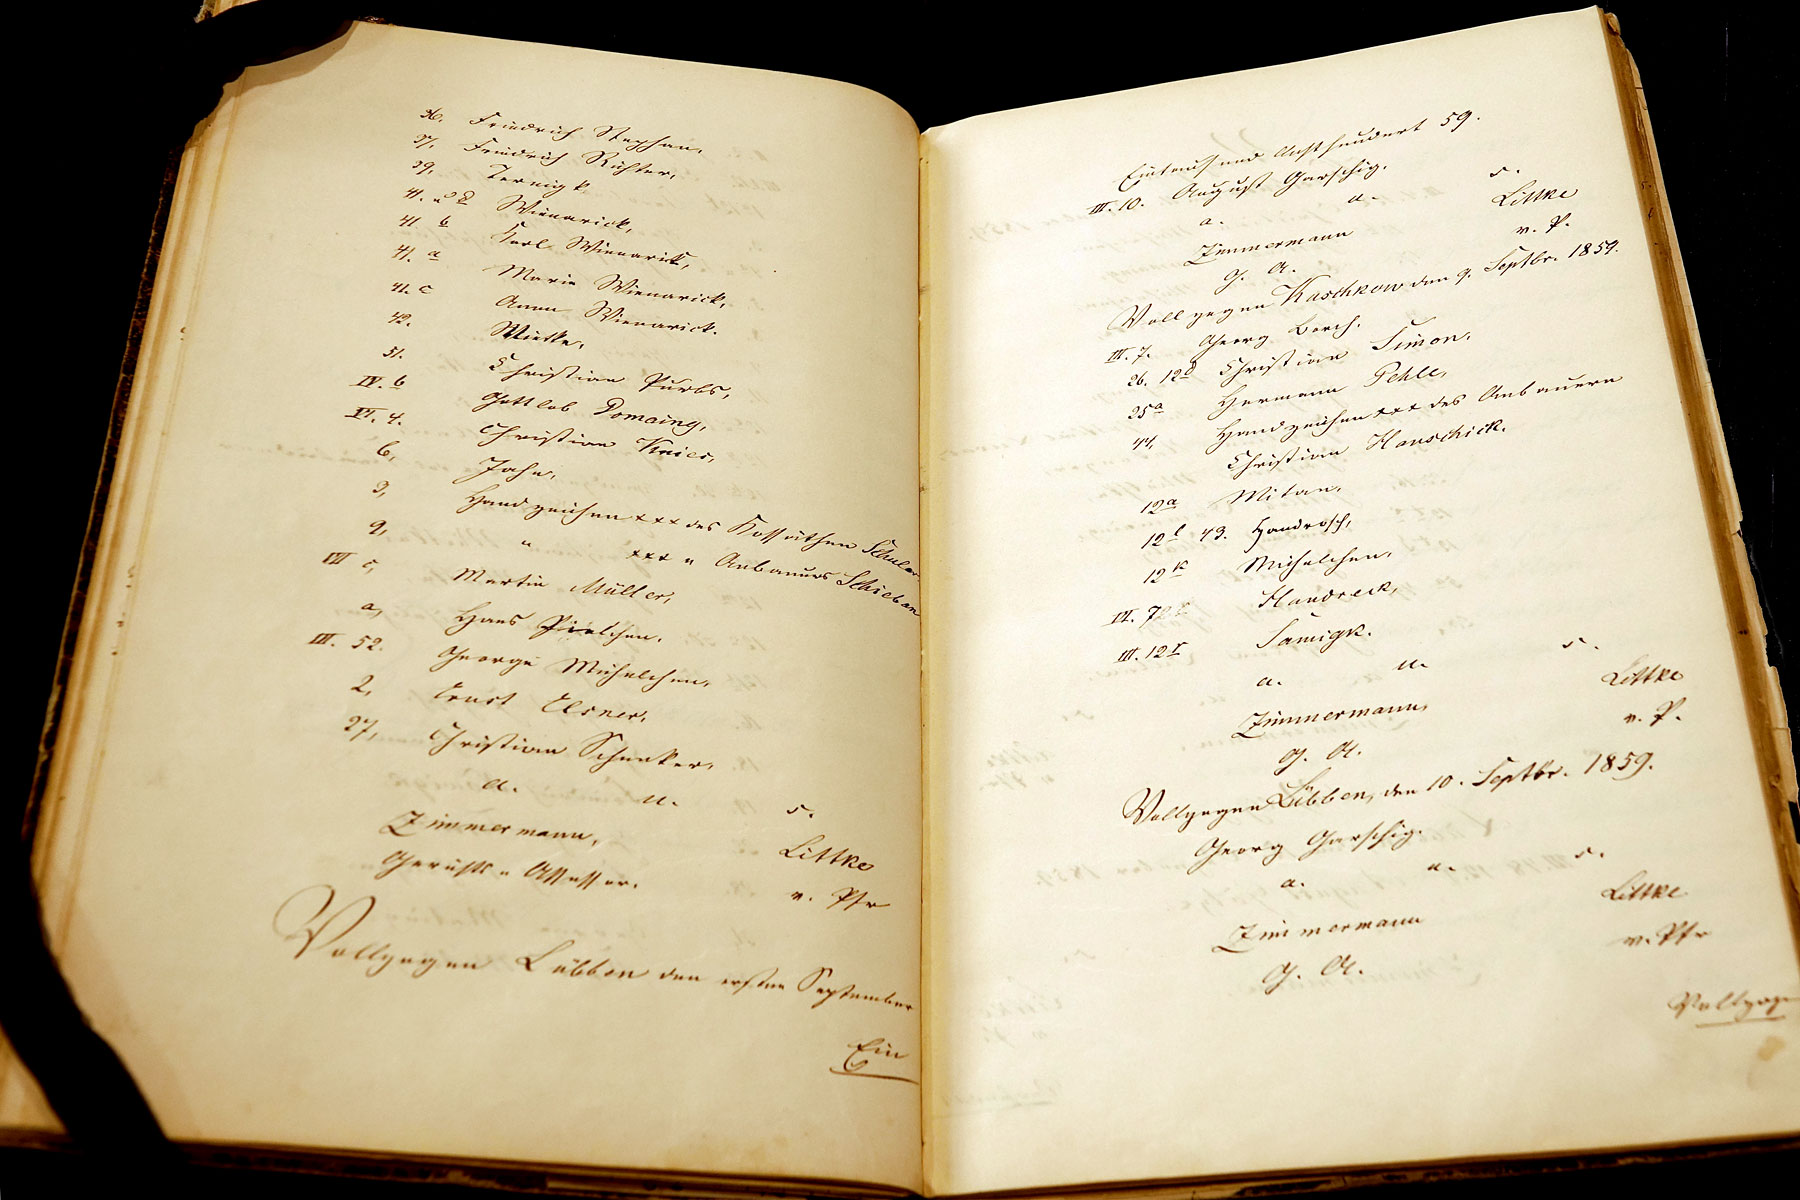 36. Friedrich Stephan,
37. Friedrich Richter,
39. Jernigk
41. u d Wienarick,
41 b Karl Wienarick,
41. a Marie Wienarick,
41. c Anna Wienarick.
42. Wietke,
51. Christian Purbs,
IV. b Gottlob Domaing,
VI. 4. Christian Knier,
6, Jahn,
3, Handzeichen xxx des Kossäthen Schuler
9, " xxx " Anbauers Schieban
VII c, Martin Müller,
a, Hans chen.
III. 52. George Michelchen,
2, Ernst Elsner,
27, Christian Schenker,
a. u. s.
Zimmermann, Littke
Gerichts-Assessor. v. Ptr
Vollzogen Lübben den ersten September
Ein
Eintausend Achthundert 59.
III. 10. August Garschig.
a. u. s.
Zimmermann Littke
G. A. v. P.
Vollzogen Kaschkow den 9. Septbr. 1859.
III. 7. Georg Borch.
26. 12 Christian Simon.
25a Hermann Pehle,
44, Handzeichen xxx des Anbauern
Christian Hanschick.
12a Mitan,
12l 43. Handrosch,
12k Michelchen,
VI. 7 Handreck,
III. 12 Samigk.
a. u. s.
Zimmermann, Littke
G. A. v. P.
Vollzogen Lübben, den 10. Septbr. 1859.
Georg Garschig.
a. u. s.
Zimmermann Littke
G. A. v. Ptr
Vollzogen